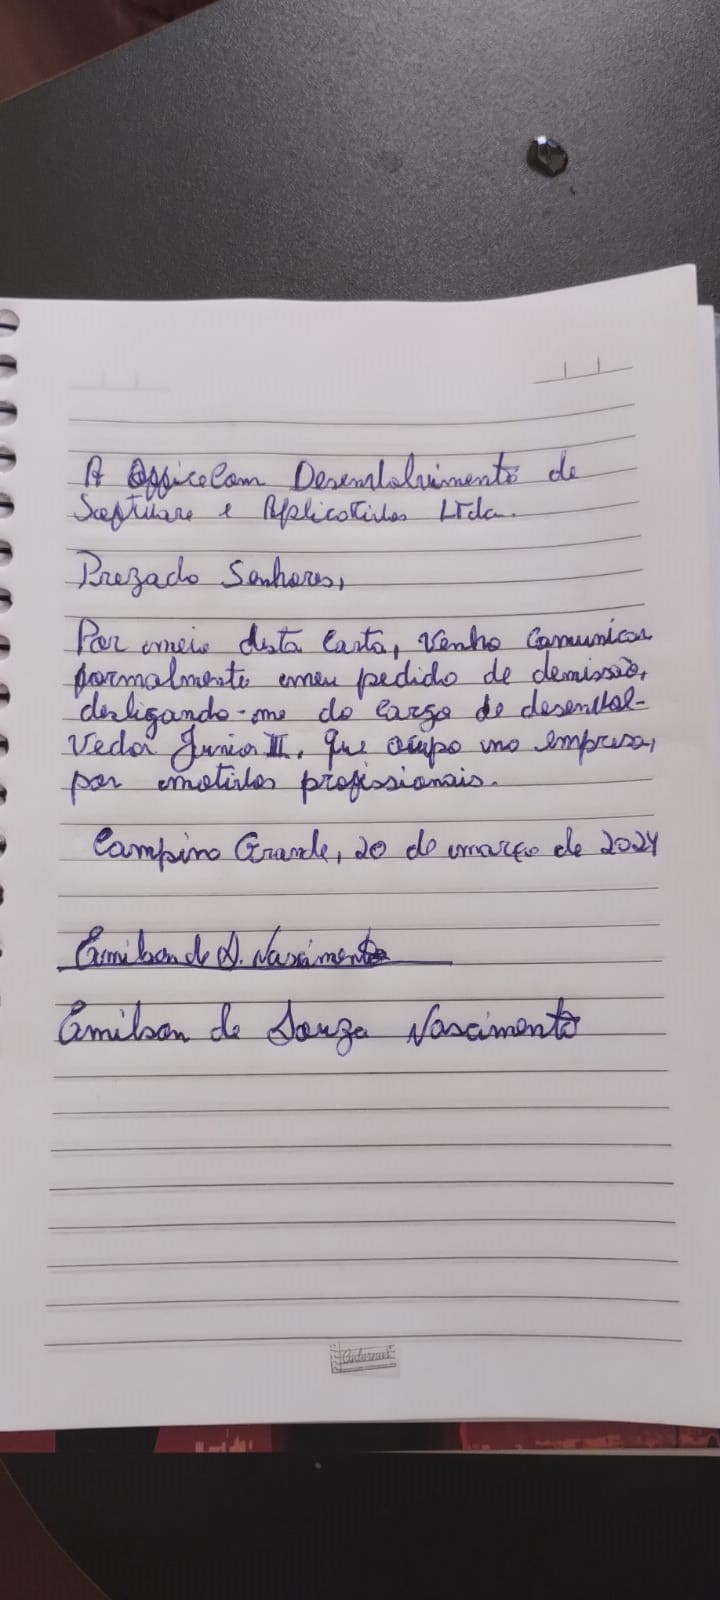 A OfficeCom Desenvolvimento de
Software e Aplicativos Ltda.
Prezado Senhores,
Por meio desta carta, venho comunicar
formalmente meu pedido de demissão,
desligando-me do cargo de desenvol-
vedor Junior II, que ocupo na empresa,
por motivos profissionais.
Campina Grande, 20 de março de 2024
Emilson de S. Nascimento
Emilson de Souza Nascimento